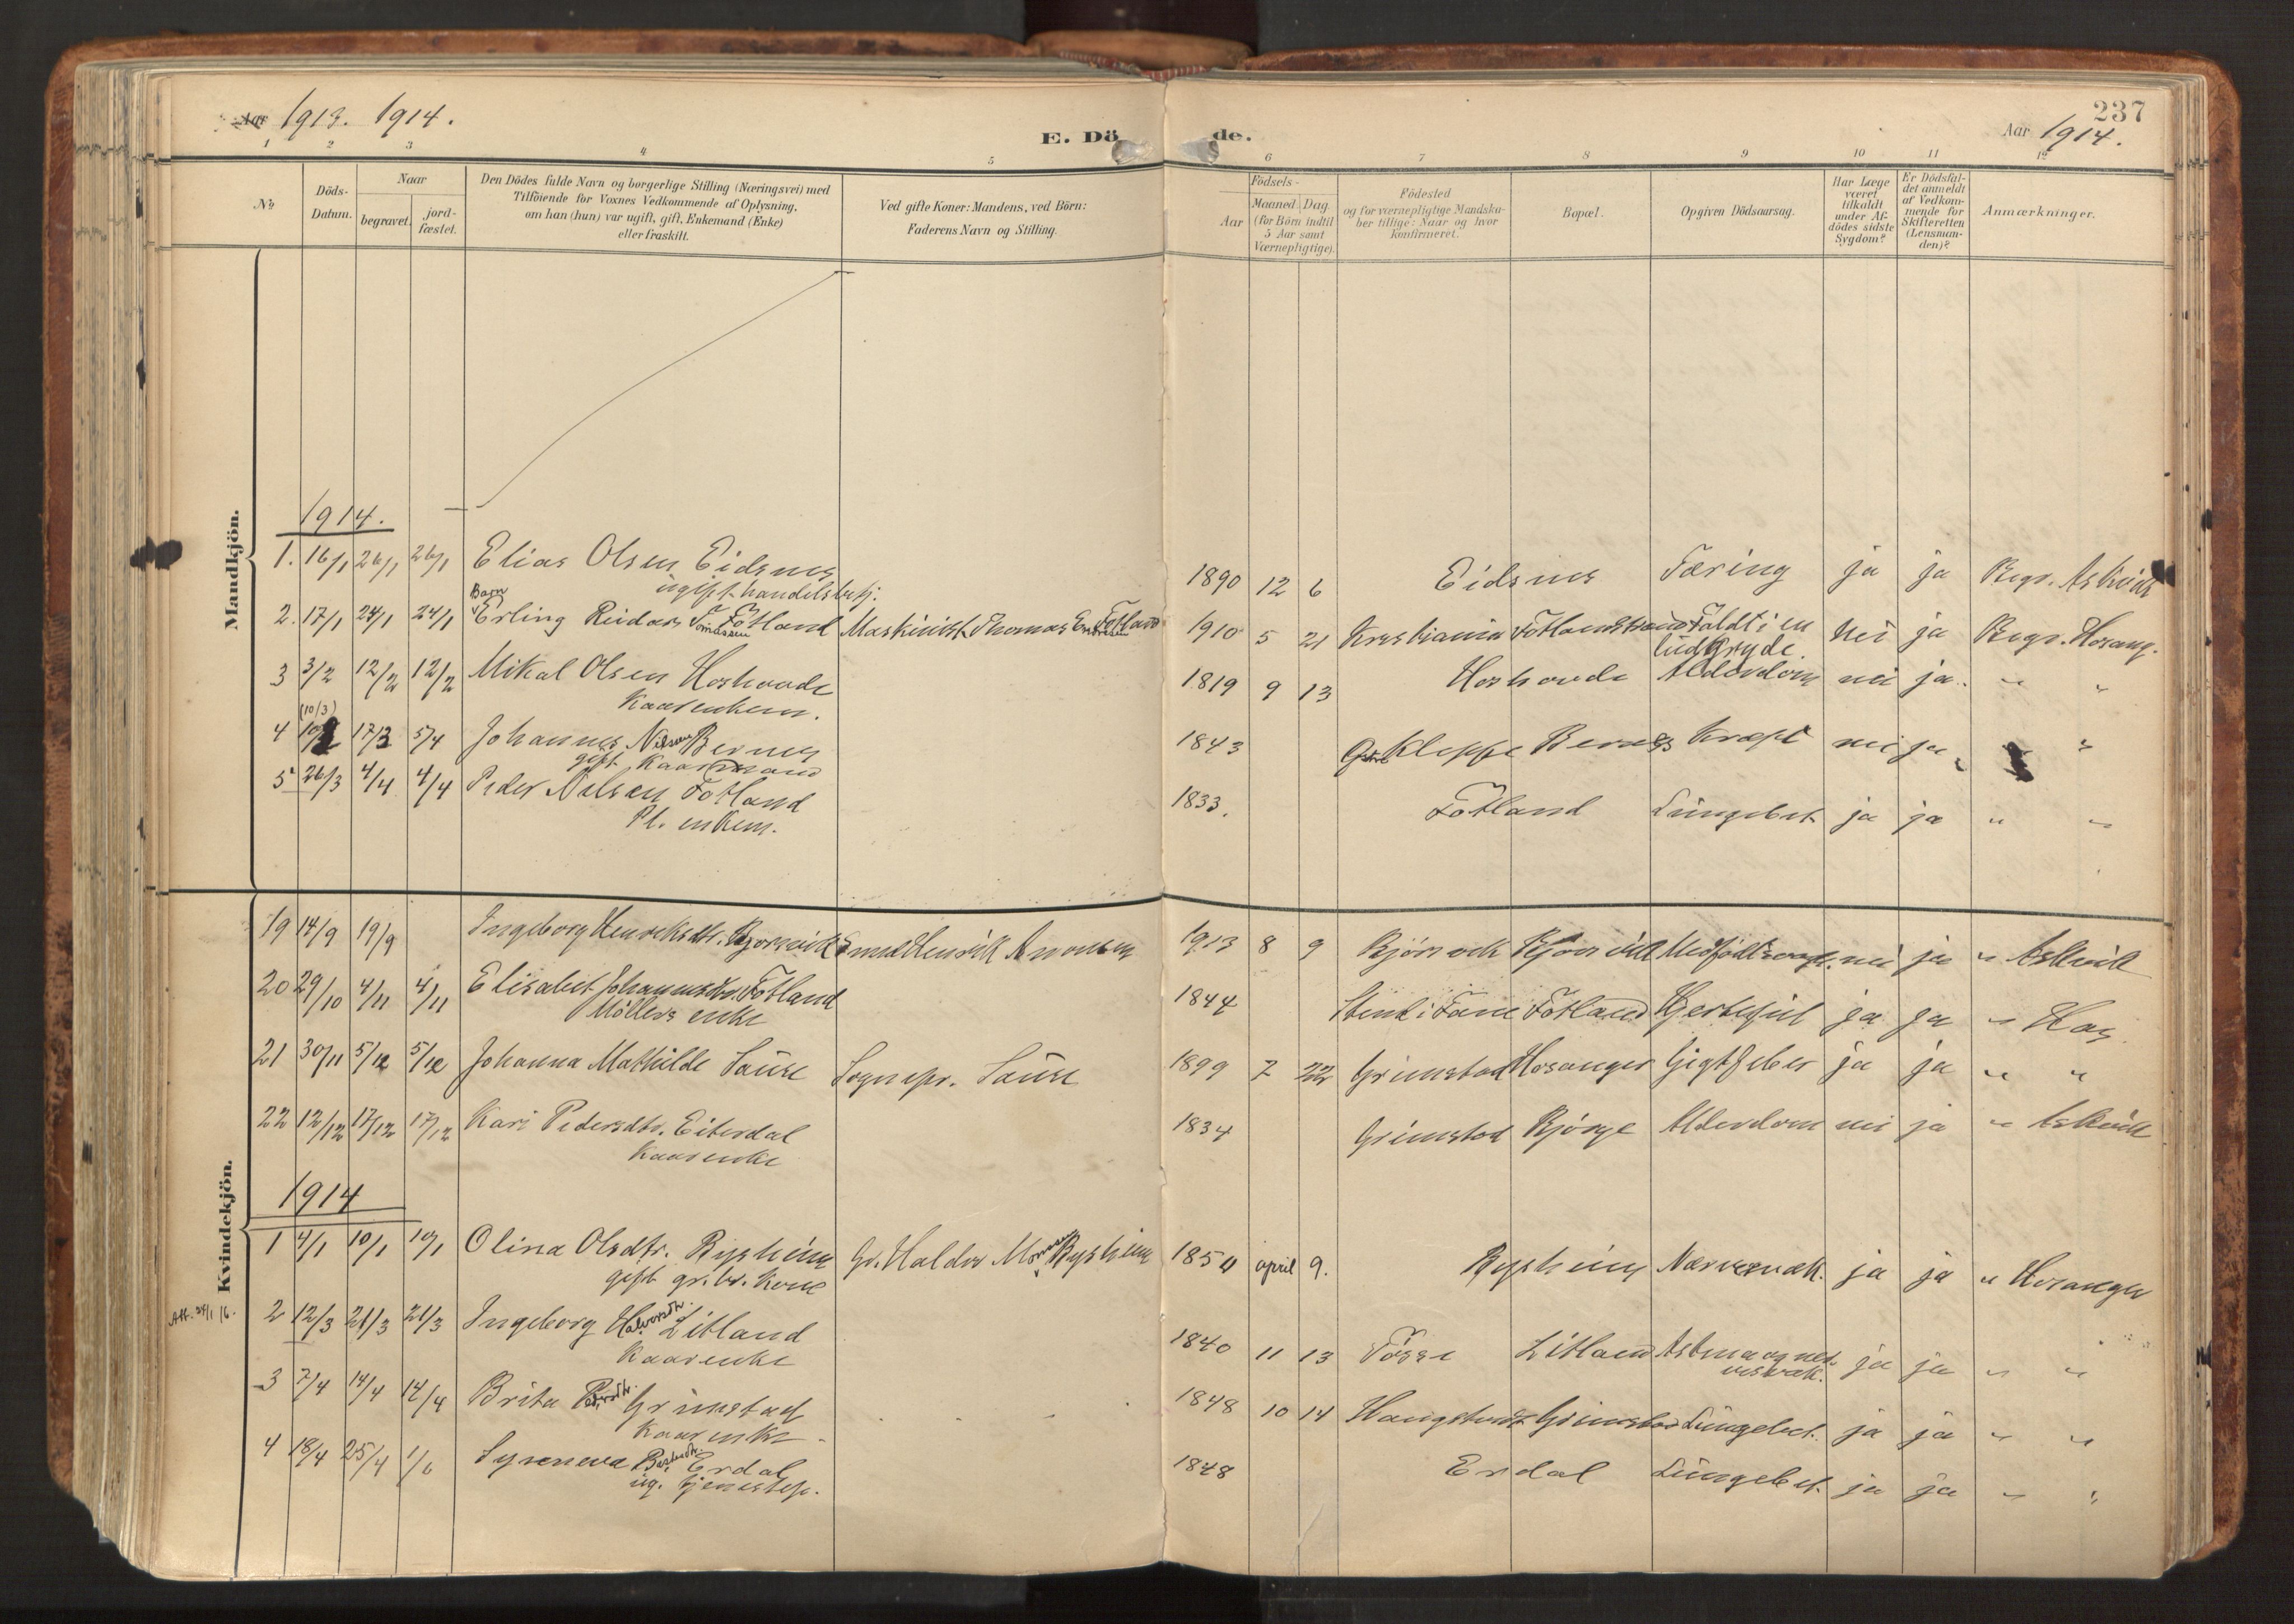 Aar 1913. 1914.
E. Dö de.
237
Aar 1914.
1 2 3 4 5 6 7 8 9 10 11 12
No
Döds-Datum.
Naar
begravet.
jord-fæstet.
Den Dödes fulde Navn og borgerlige Stilling (Næringsvei) med
Tilföiende for Voxnes Vedkommende af Oplysning,
om han (hun) var ugift, gift, Enkemand (Enke)
eller fraskilt.
Ved gifte Koner: Mandens, ved Börn:
Faderens Navn og Stilling.
Födsels-
Aar
Maaned. Dag
(for Börn indtil
5 Aar samt
Værnepligtige).
Födested
og for værnepligtige Mandska-
ber tillige: Naar og hvor
konfirmeret.
Bopæl.
Opgiven Dödsaarsag.
Har Læge
været
tilkaldt
under Af-
dödes sidste
Sygdom?
Er Dödsfal-
det anmeldt
af Vedkom-
mende for
Skifteretten
(Lensman-
den)?
Anmærkninger.
Mandkjön.
1914.
1. 16/1 26/1 26/1 Elias Olsen Eidsnes 1890 12 6 Eidsnes Tæring ja ja Begr. Askvik
ugift handelsbetj.
Barn
2. 17/1 24/1 24/1 Erling Reidar Tomassen Fotland Maskinist Thomas Endresen Fotland 1910 5 21 Kristiania Fotlandstrand Faldt i en nei ja Begr. Hosang.
ludgryde.
3 3/2 12/2 12/2 Mikal Olsen Hoshovde 1819 9 13 Hoshovde Alderdom nei ja " "
Kaarenkem.
(10/3)
4 17/3 5/4 Johannes Nilsen Bernes 1843 Kleppe Bernes Kræft nei ja "
gift Kaarmand
5 26/3 4/4 4/4 Peder Nilsen Fotland 1833. Fotland Lungebet. ja ja " "
Pl. enkem.
Kvindekjön.
19 14/9 19/9 Ingeborg Henriksdtr. Bjørnvik Emil Henrik Amonsen 1913 8 9 Bjørnvik Bjørnvik Medfødt svagh. nei ja " Askvik
20 29/10 4/11 4/11 Elisabet Johannesdtr. Fotland 1844 Stend i Fane Fotland Hjertefeil ja ja " Hos.
Møllers enke
21 30/11 5/12 5/12 Johanna Mathilde Sause Sognepr. Sause 1899 7 22 Grimstad Hosanger Gigtfeber ja ja " "
22 12/12 17/12 17/12 Kari Pedersdtr. Eiterdal 1834 Grimstad Bjørge Alderdom nei ja " Askvik
Kaarenke
1914
1 4/1 10/1 10/1 Olina Olsdtr. Bysheim Gr. Haldor Monsen Bysheim 1854 april 9. Bysheim Nervesvæk. ja ja " Hosanger
gift gr.br. Kone
Att. 24/1 16.
2 12/3 21/3 21/3 Ingeborg Halvorsdtr. Litland 1840 11 13 Fosse Litland Astma og ner- ja ja " "
Kaarenke vesvæk.
3 7/4 14/4 14/4 Brita Pedersdtr. Grimstad 1848 10 14 Haugstad Grimstad Lungebet. ja ja " "
Kaarenke
4 18/4 25/4 1/6 Syneneva Erdal 1848 Erdal Lungebet. ja ja " "
ug. tjenestep.